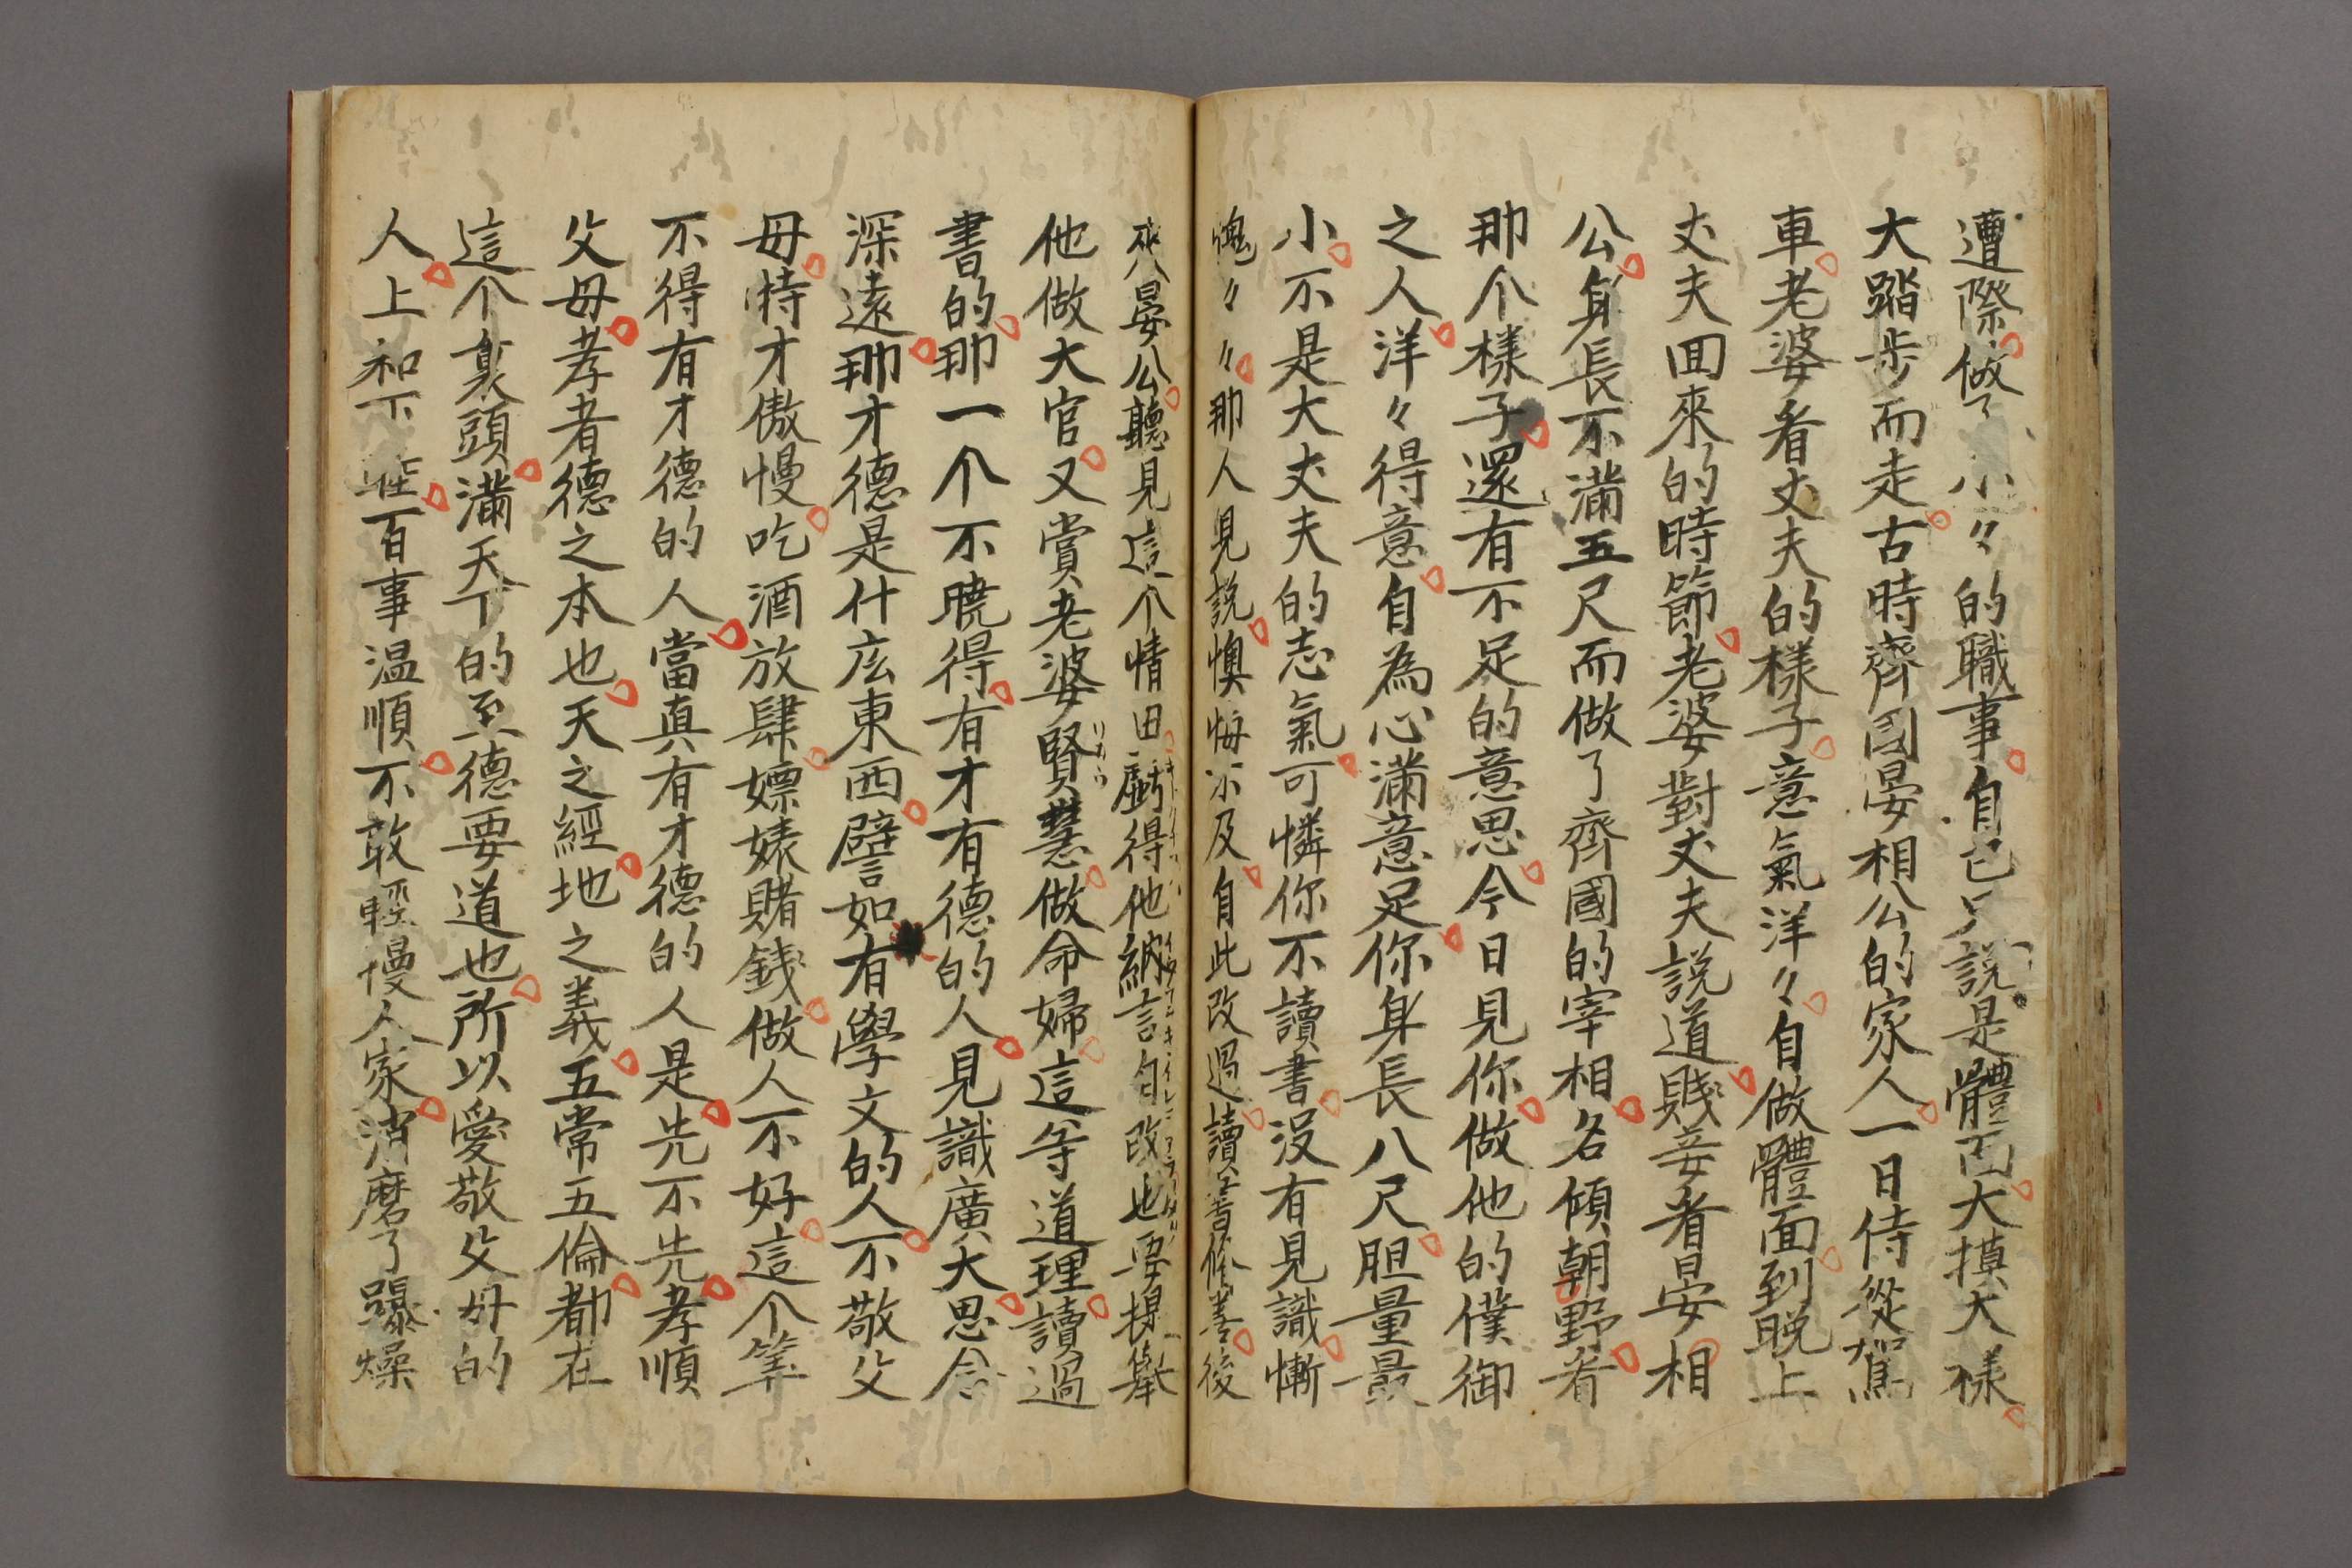 遭際做了小々的職事自己只說是體面大摸大樣
大踏步而走古時齊國晏相公的家人一日侍從駕
車老婆看丈夫的樣子意氣洋々自做體面到晚上
丈夫回來的時節老婆對丈夫說道賤妾看晏相
公身長不滿五尺而做了齊國的宰相名傾朝野看
那个樣子還有不足的意思今日見你做他的僕御
之人洋々得意自為心滿意足你身長八尺胆量最
小不是大丈夫的志氣可憐你不讀書沒有見識慚
愧々々那人見說懊悔不及自此改過讀書修善後
來晏公聽見這个情由虧得他納言自改也要擡舉
他做大官又賞老婆賢慧做命婦這等道理讀過
書的那一个不曉得有才有德的人見識廣大思念
深遠那才德是什庅東西譬如有學文的人不敬父
母恃才傲慢吃酒放肆嫖婊賭錢做人不好這个筭
不得有才德的人當真有才德的人是先不先孝順
父母孝者德之本也天之經地之義五常五倫都在
這个裏頭滿天下的至德要道也所以愛敬父母的
人上和下 百事温順不敢輕慢人家消磨了躁燥